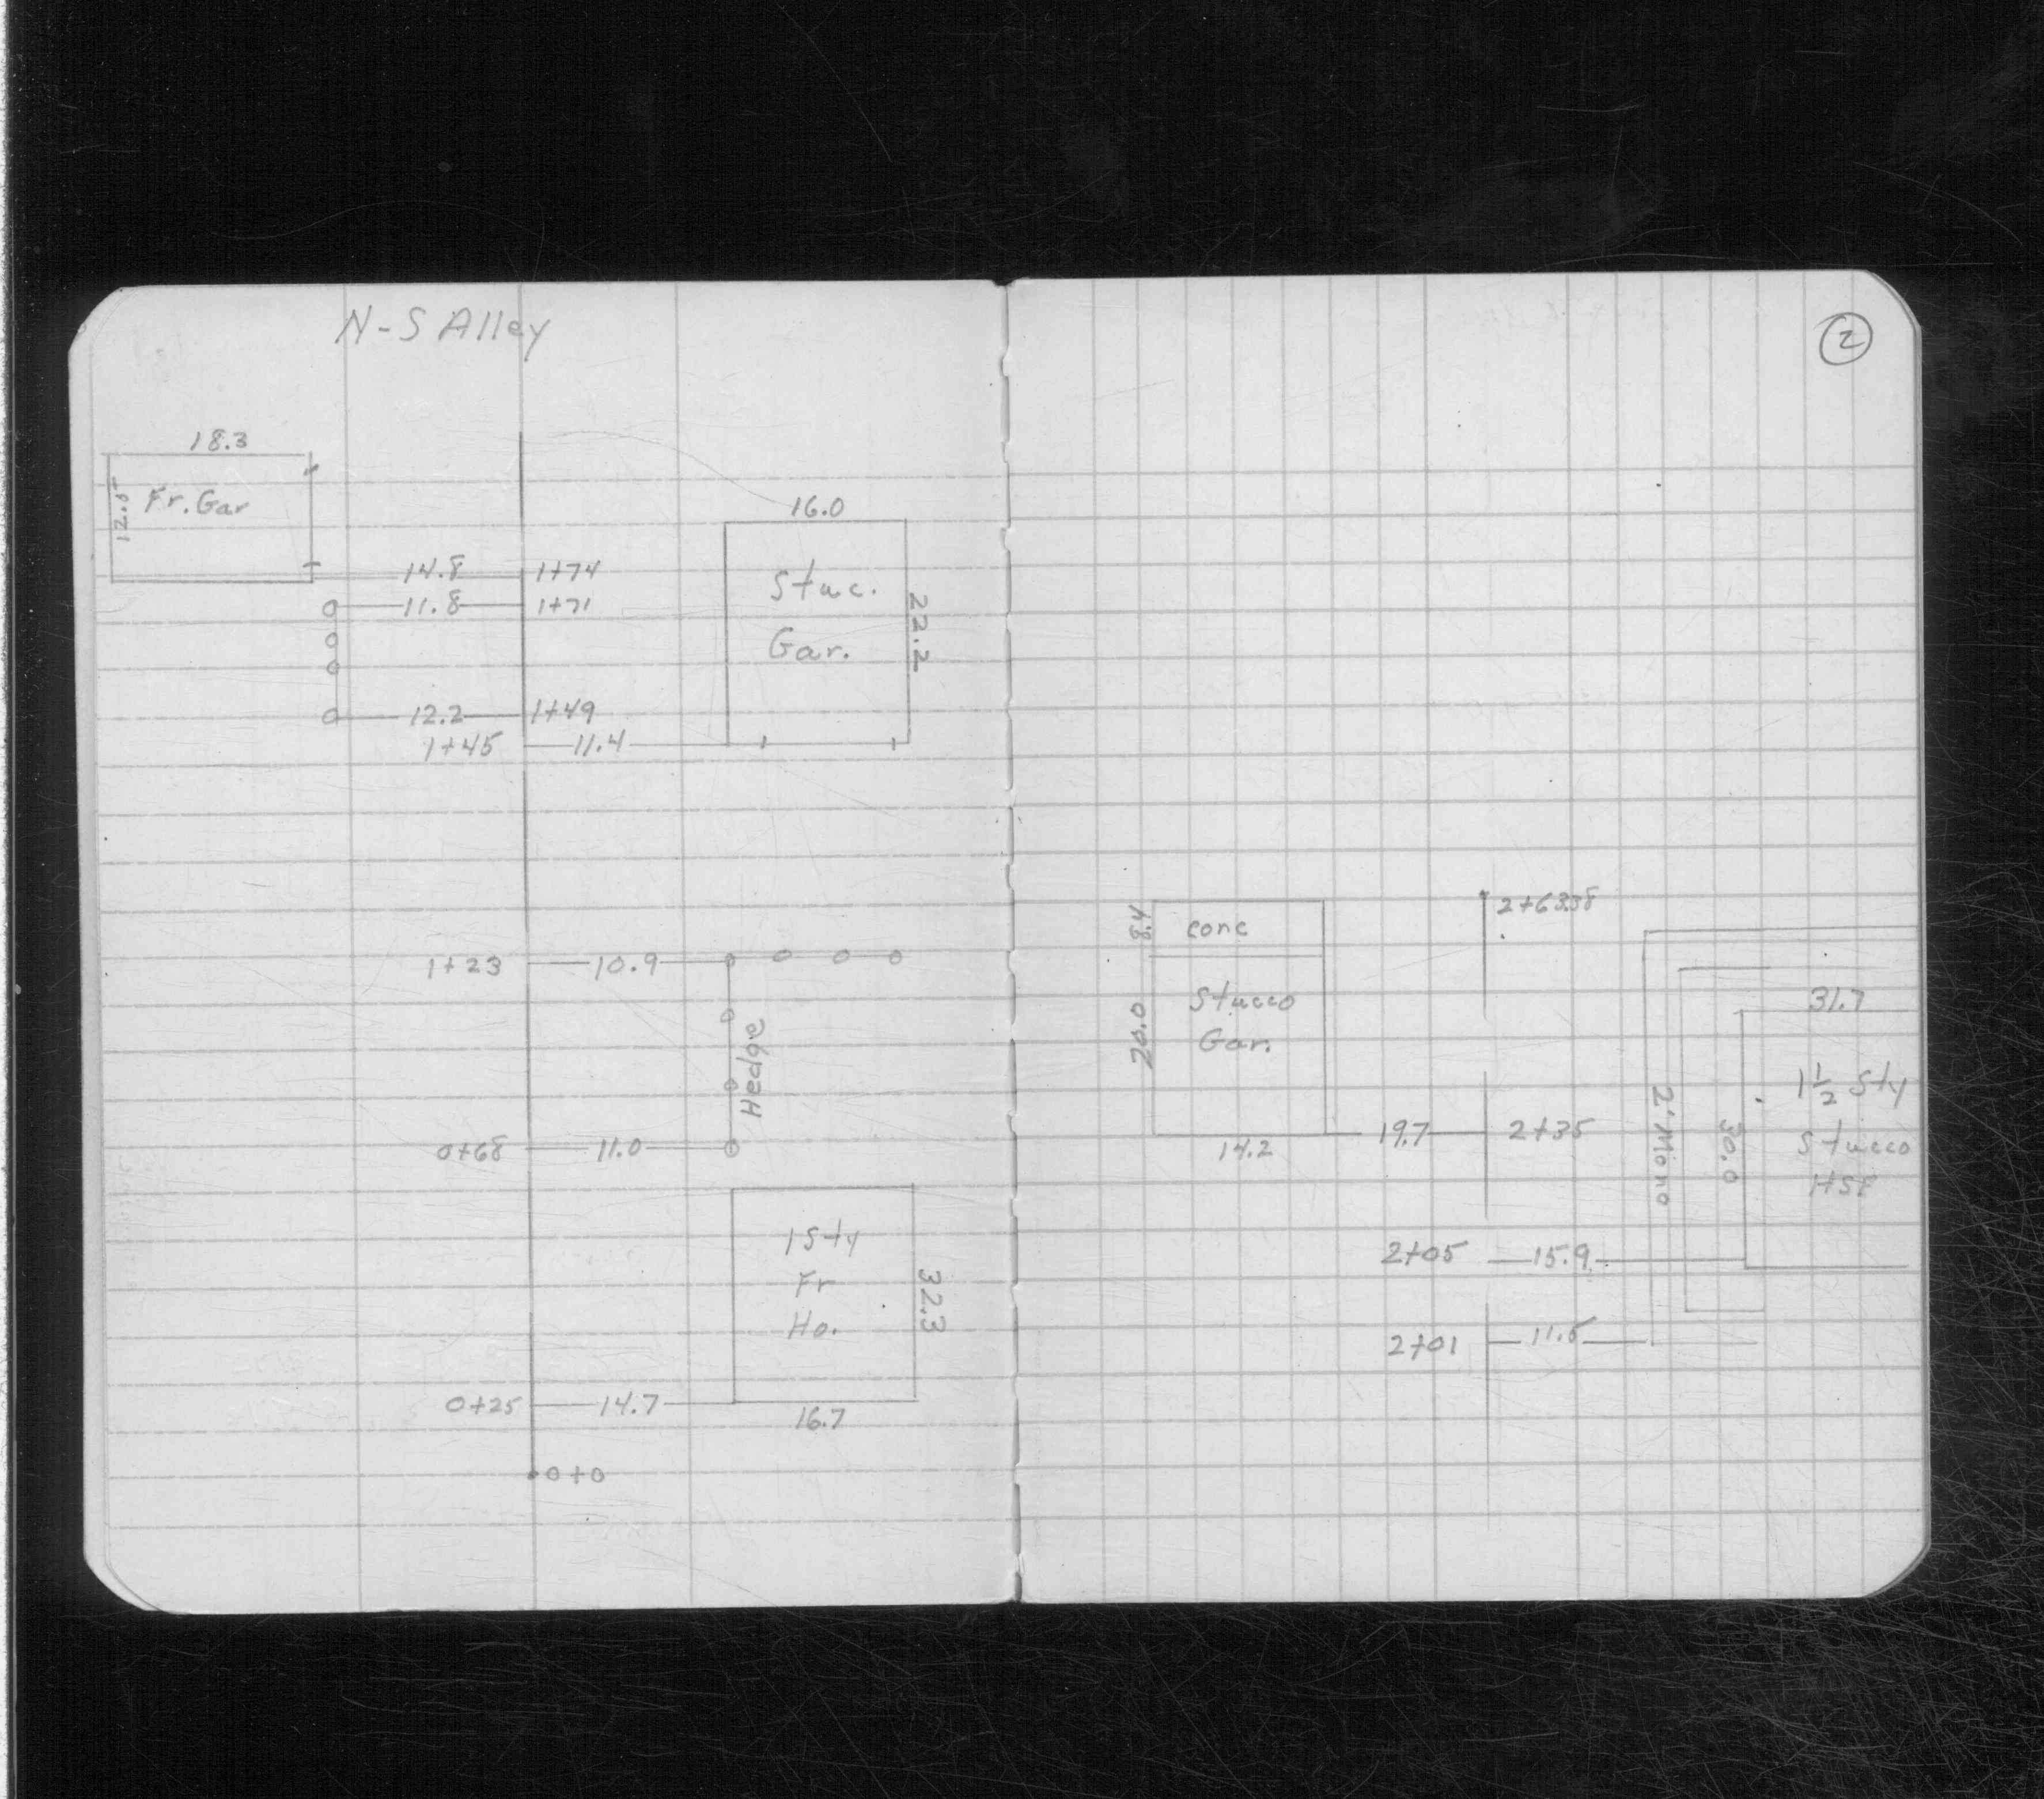 N-S Alley
18.3
12.5
Fr. Gar
16.0
14.8 1+74
11.8 1+71
Stuc.
Gar.
22.2
12.2 1+49
1+45 11.4
1+23 10.9
Hedge
0+68 11.0
1 Sty
Fr
Ho.
32.3
0+25 14.7
16.7
0+0
2
conc
2+63.38
Stucco
Gar.
20.0
31.7
1 1/2 Sty
Stucco
HSE
14.2
19.7 2+35
2' Mono
30.0
2+05 15.9
2+01 11.5